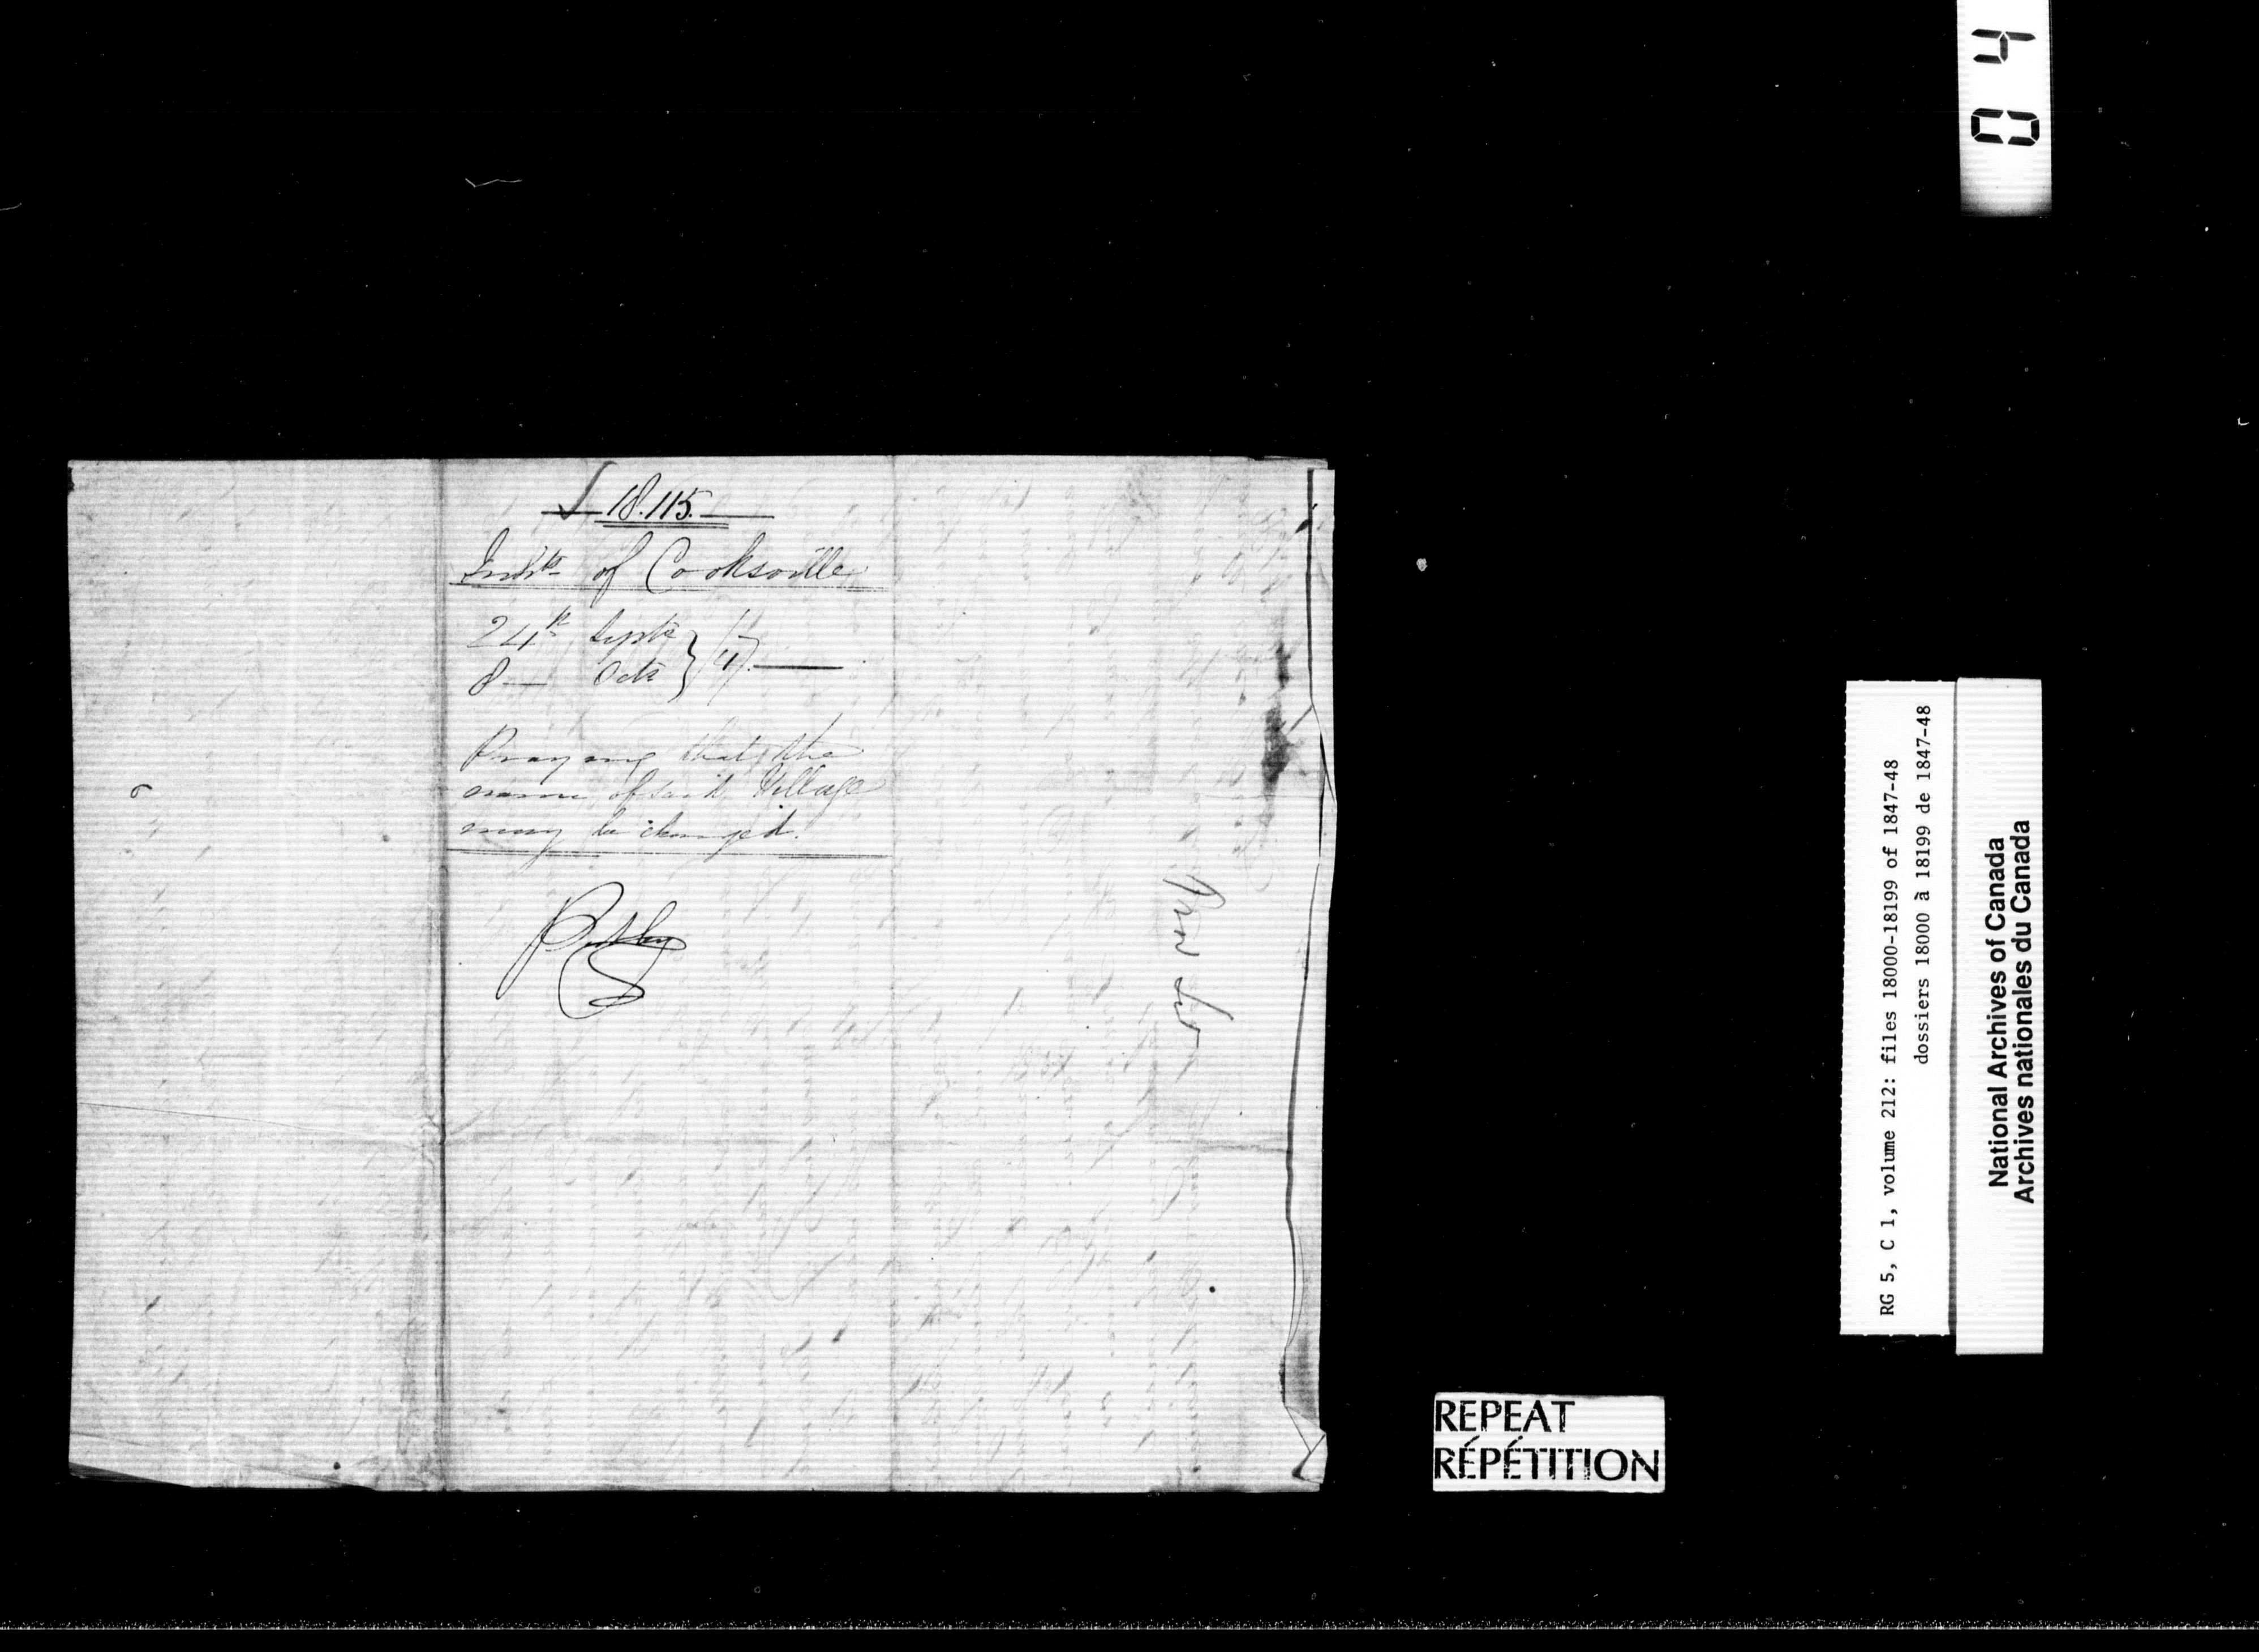 18.115.
Inhts of Cooksville
24th Septr
8 — Octr } /47. —
Praying that the
name of said Village
may be changed.
REPEAT
RÉPÉTITION
RG 5, C 1, volume 212: files 18000-18199 of 1847-48
dossiers 18000 à 18199 de 1847-48
National Archives of Canada
Archives nationales du Canada
04